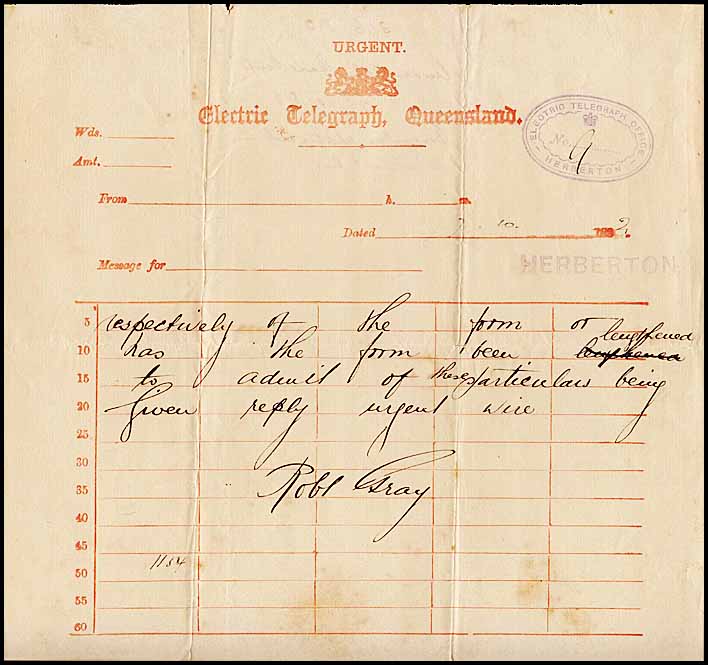 URGENT.
Electric Telegraph, Queensland.
Wds.
Amt.
ELECTRIC TELEGRAPH OFFICE
No. 9
HERBERTON
From h. m.
Dated 10. 2
Message for
HERBERTON
5 respectively of the form or
lengthened
10 has the form been lengthened
15 to admit of these particulars being
20 Given reply urgent wire
25
30
35 Robt Gray
40
45
50 1154
55
60